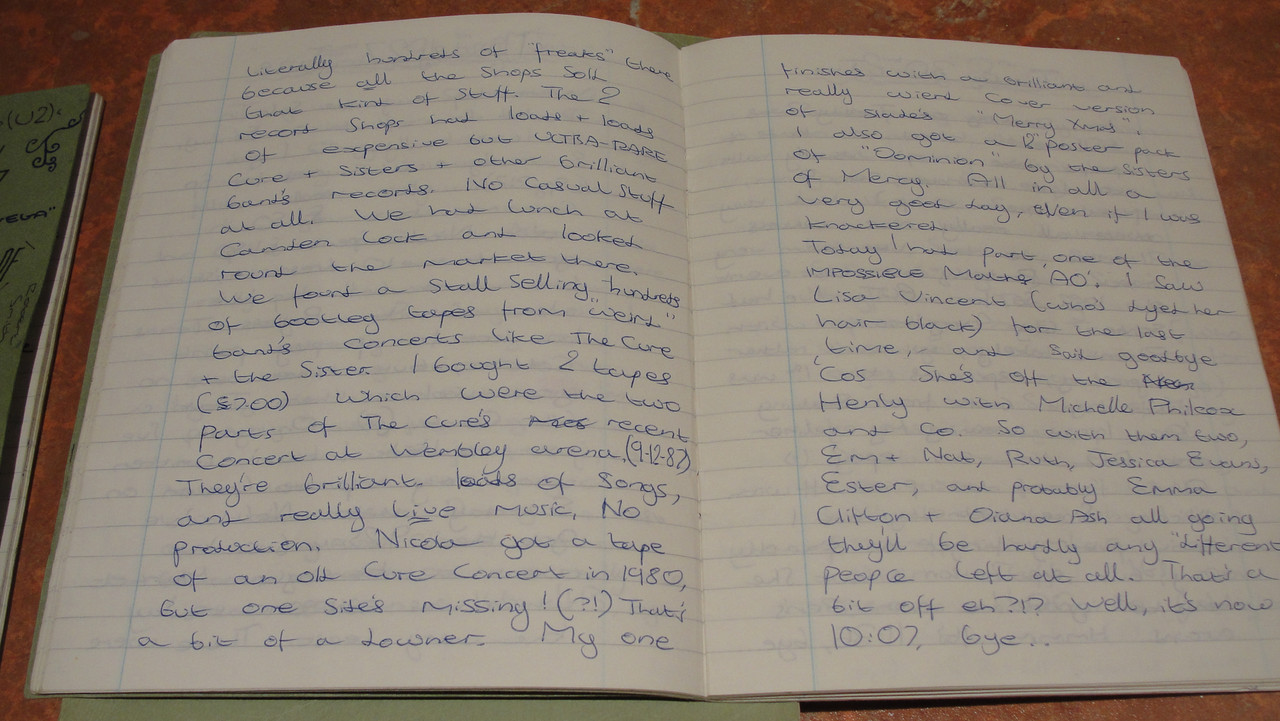 (U2).
Literally hundreds of "freaks" there
because all the shops sold
that kind of stuff. The 2
record shops had loads + loads
of expensive but ULTRA-RARE
Cure + Sisters + other brilliant
band's records. No Casual stuff
at all. We had lunch at
Camden Lock and looked
round the market there.
We found a stall selling hundreds
of bootleg tapes from "weird"
band's concerts like The Cure
+ the Sister. I bought 2 tapes
(£7.00) which were the two
parts of The Cure's recent
concert at Wembley arena. (9-12-87).
They're brilliant. loads of songs,
and really Live music. No
production. Nicola got a tape
of an old Cure Concert in 1980,
but one side's missing! (?!) That's
a bit of a downer. My one
finishes with a brilliant and
really wierd cover version
of Slade's "Merry Xmas".
I also got a 12" poster pack
of "Dominion" by the Sisters
of Mercy. All in all a
very good day, even if I was
knackered.
Today I had part one of the
IMPOSSIBLE Maths AO. I saw
Lisa Vincent (who's dyed her
hair black) for the last
time, and said goodbye
'Cos She's off the
Henly with Michelle Philcox
and Co. So with them two,
Em + Nat, Ruth, Jessica Evans,
Ester, and probably Emma
Clifton + Diana Ash all going
they'll be hardly any "different"
people left at all. That's a
bit off eh?!? Well, it's now
10:07, bye..